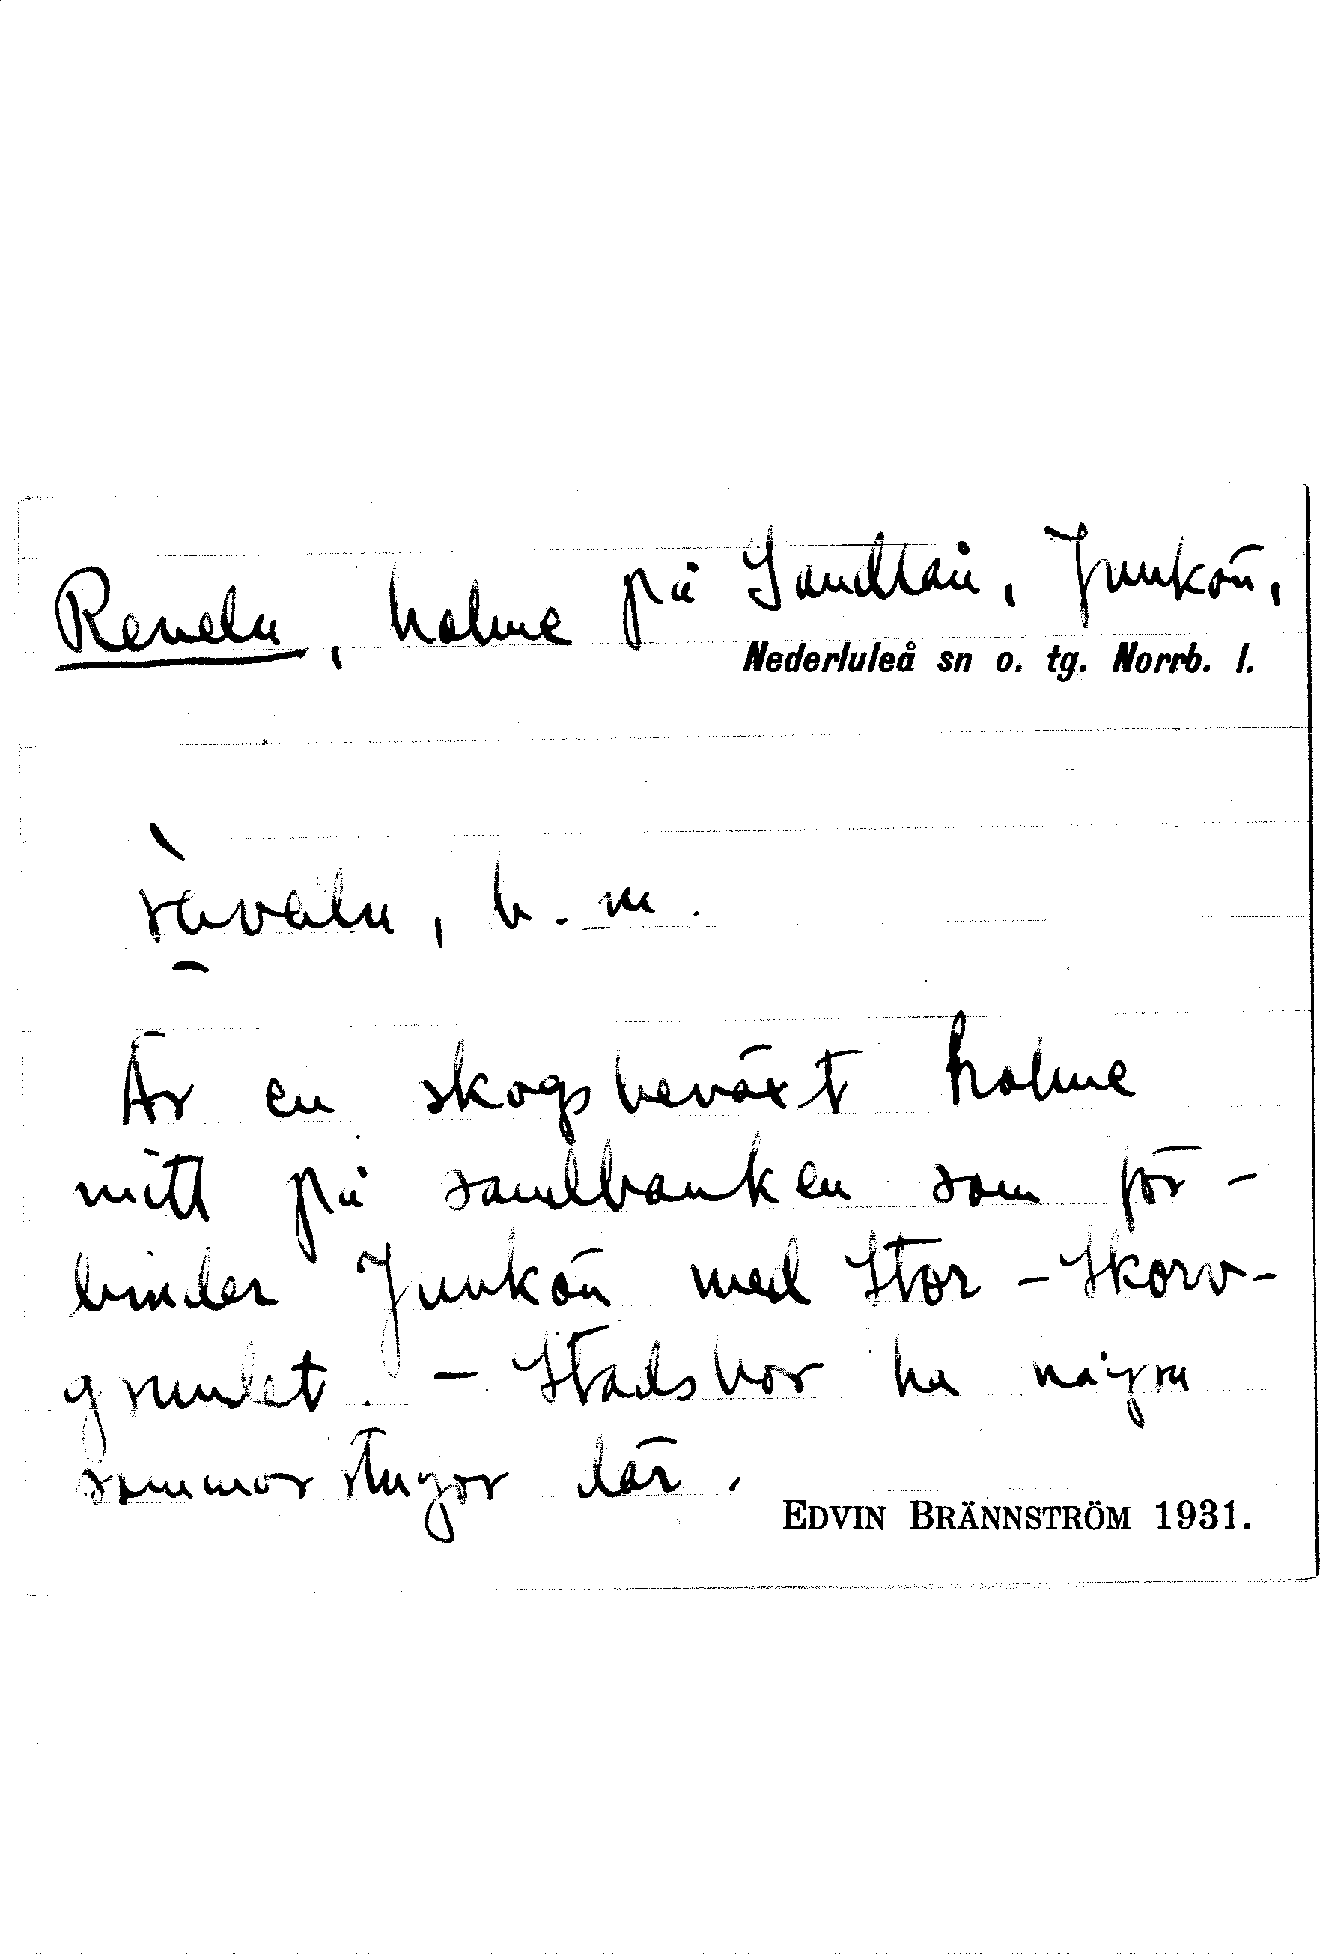 Reveln, holme på Sandtån, Junkön,
Nederluleå sn o. tg. Norrb. l.
b. m.
Är en skogsbeväxt holme
mitt på sandbanken som för-
binder Junkön med Stor-Skorv-
grundet. - Stadsbor ha några
sommarstugor där.
EDVIN BRÄNNSTRÖM 1931.